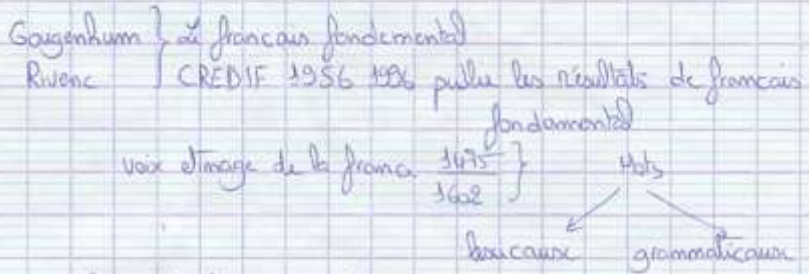 Gougenhum } Le francais fondemental
Rivenc } CREDIF 1956 1996 pullie les résultats de francais
fondamental
voix et image de la france 1475 } Mots
1602
lexicaux grammaticaux